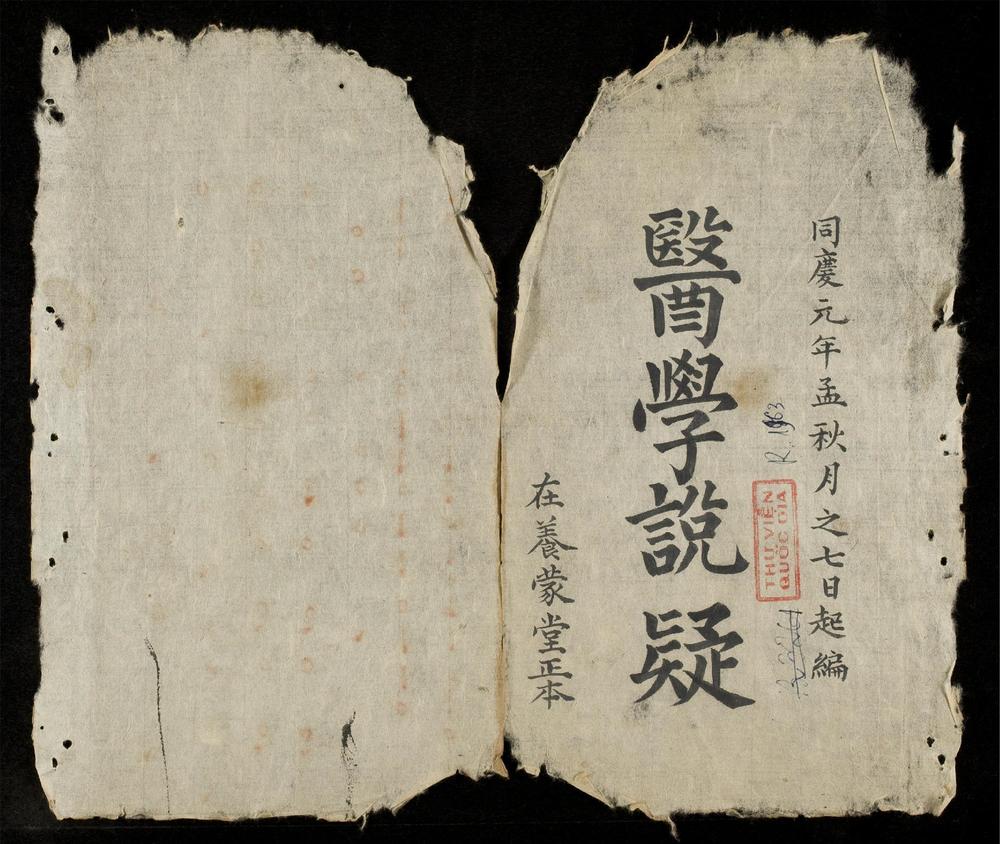 同慶元年孟秋月之七日起編
R. 1963
THƯ VIỆN
QUỐC GIA
醫學說疑
在養蒙堂正本